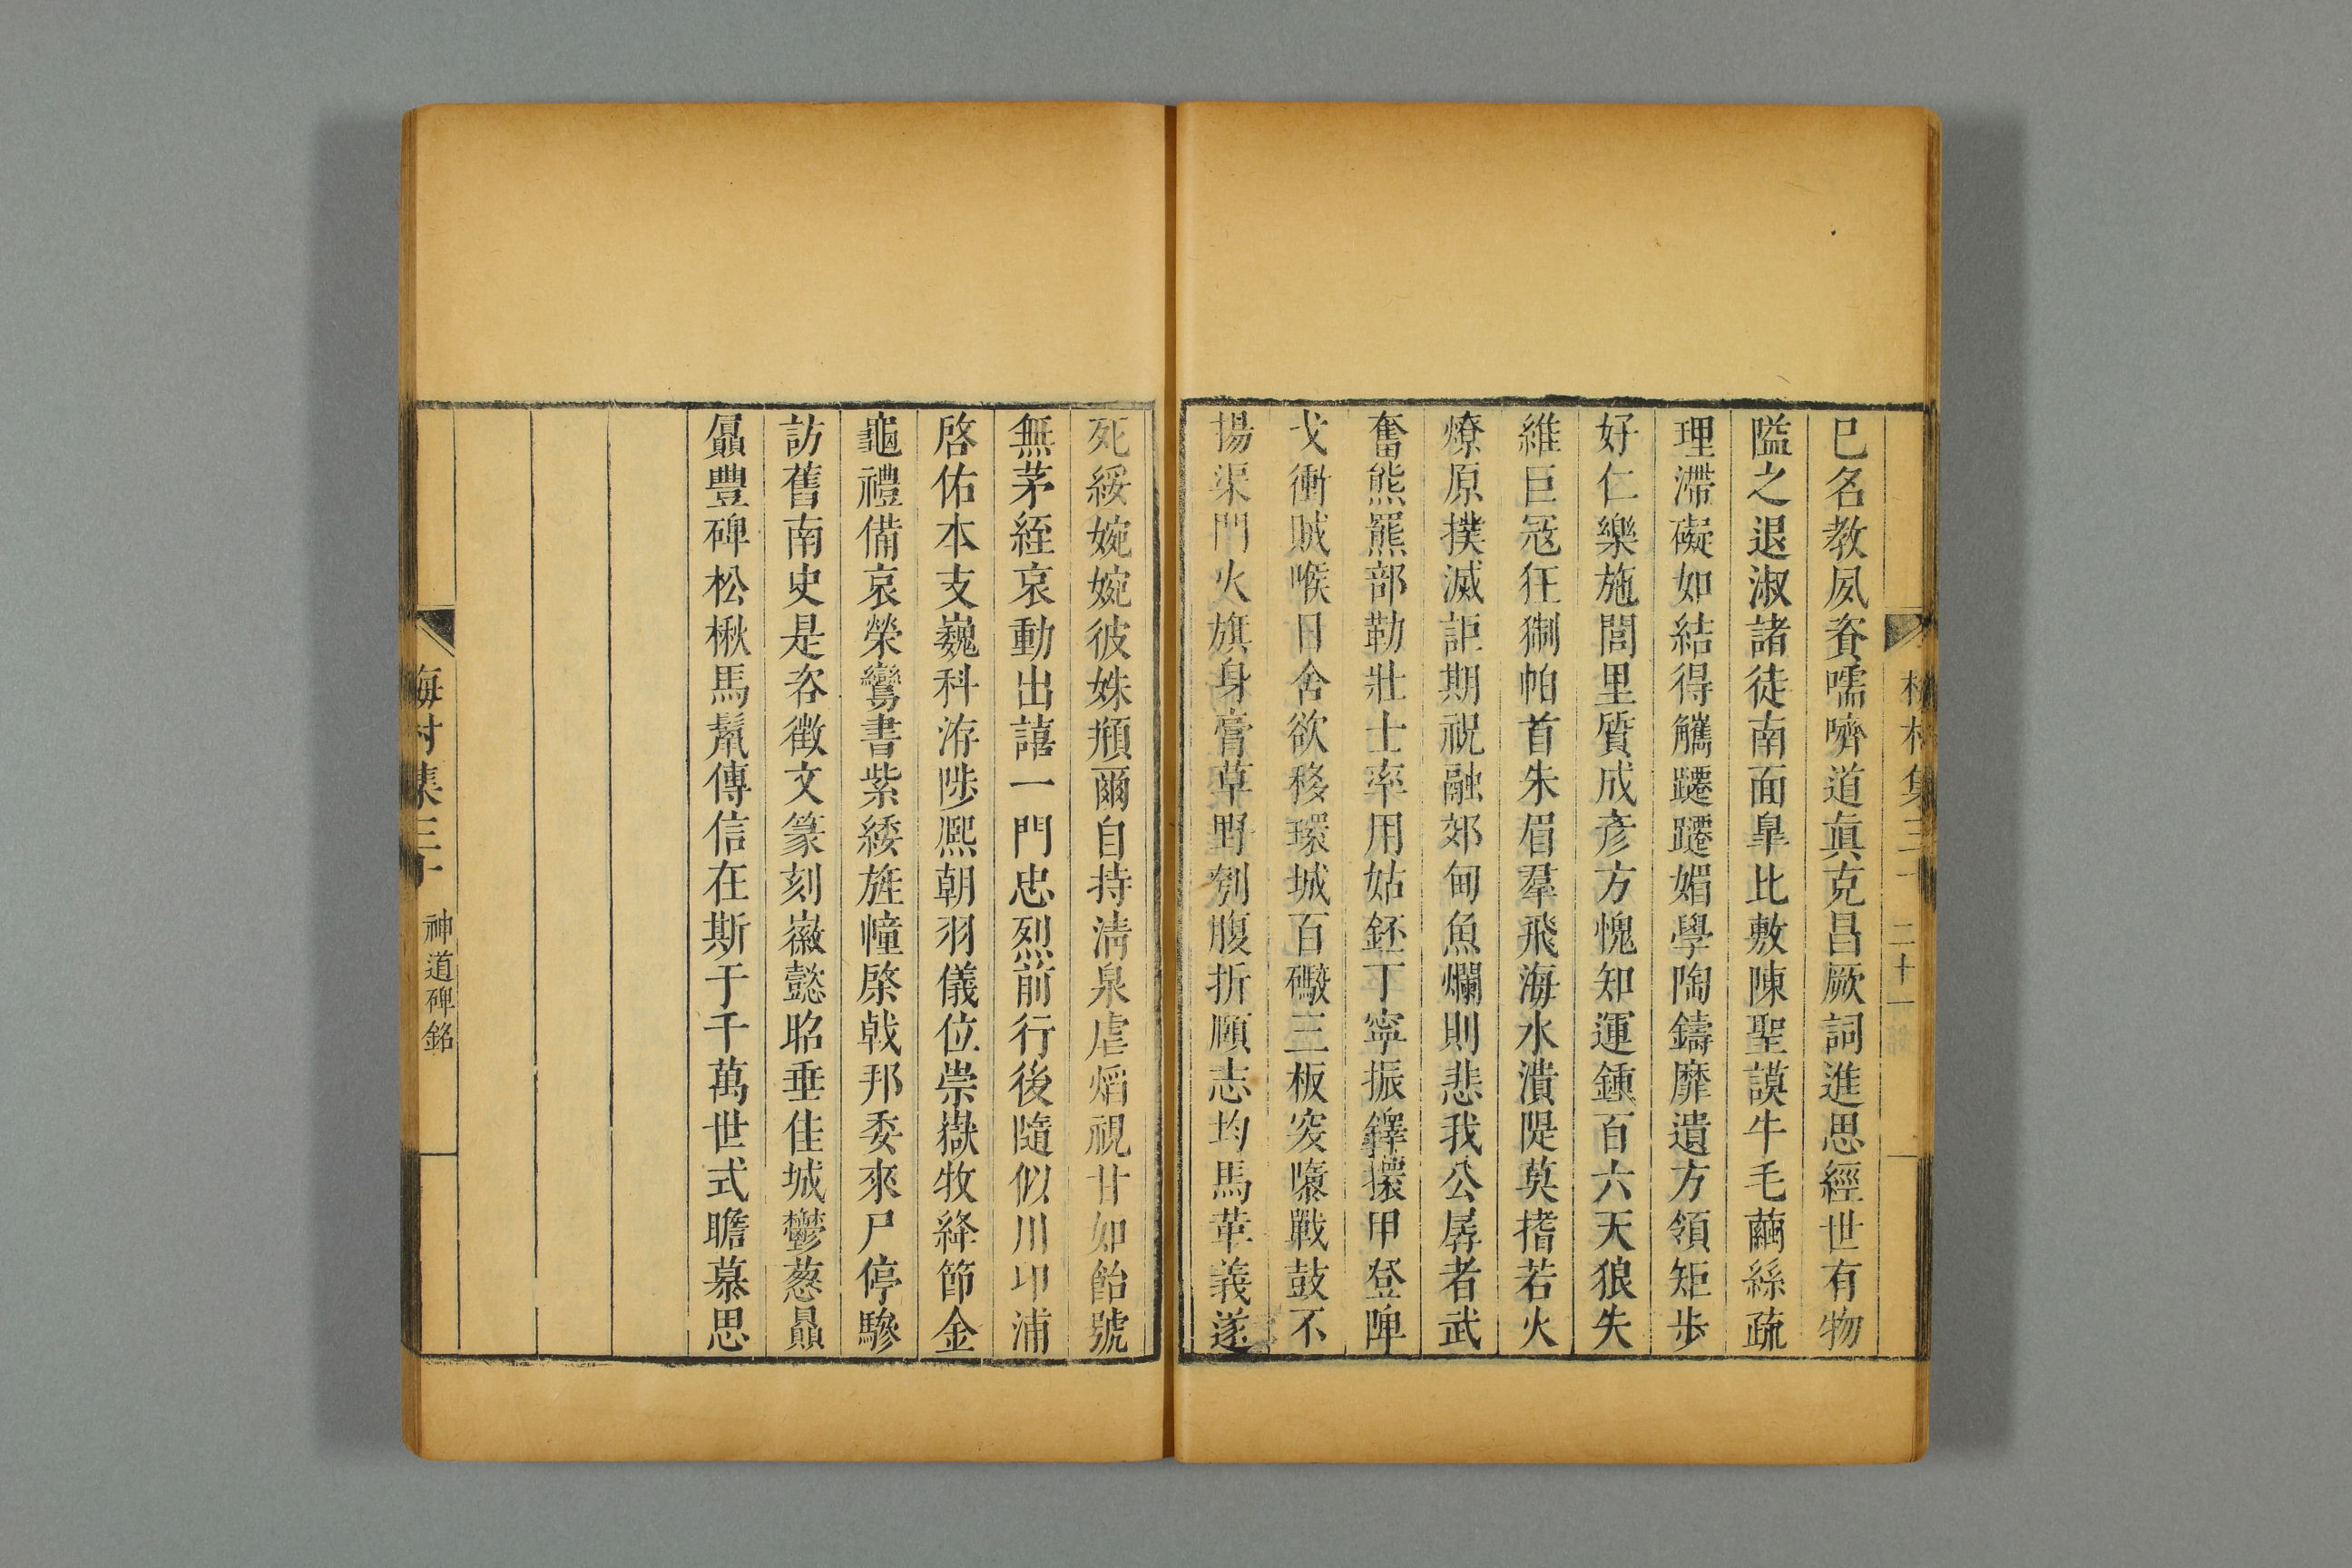 集三
二十一
巳名教夙夜嚅嚌道真克昌厥詞進思經世有物
隘之退淑諸徒南面臯比敷陳聖謨牛毛繭絲疏
理滯礙如結得觿躚躚媚學陶鑄靡遺方領矩步
好仁樂施閭里質成彥方愧知運鍾百六天狼失
維巨寇狂猘帕首朱眉羣飛海水潰隄莫揩若火
燎原撲滅詎期祝融郊甸魚爛則悲我公孱者武
奮熊羆部勒壯士率用姑鉟丁寧振鐸擐甲登陴
戈衝賊喉日舍欲移環城百礮三板突隳戰鼓不
揚渠門火旗身膏草野刳腹折頤志均馬革義遂
死綏婉婉彼姝頩爾自持淸泉虐焰視甘如飴號
無茅絰哀動出譆一門忠烈前行後隨似川印浦
啓佑本支巍科洊陟熈朝羽儀位崇嶽牧絳節金
龜禮備哀榮鸞書紫綬旌幢棨戟邦委來尸停驂
訪舊南史是咨徵文篆刻徽懿昭垂佳城鬱葱贔
屭豐碑松楸馬鬛傳信在斯于千萬世式瞻慕思
海村集三十
神道碑銘